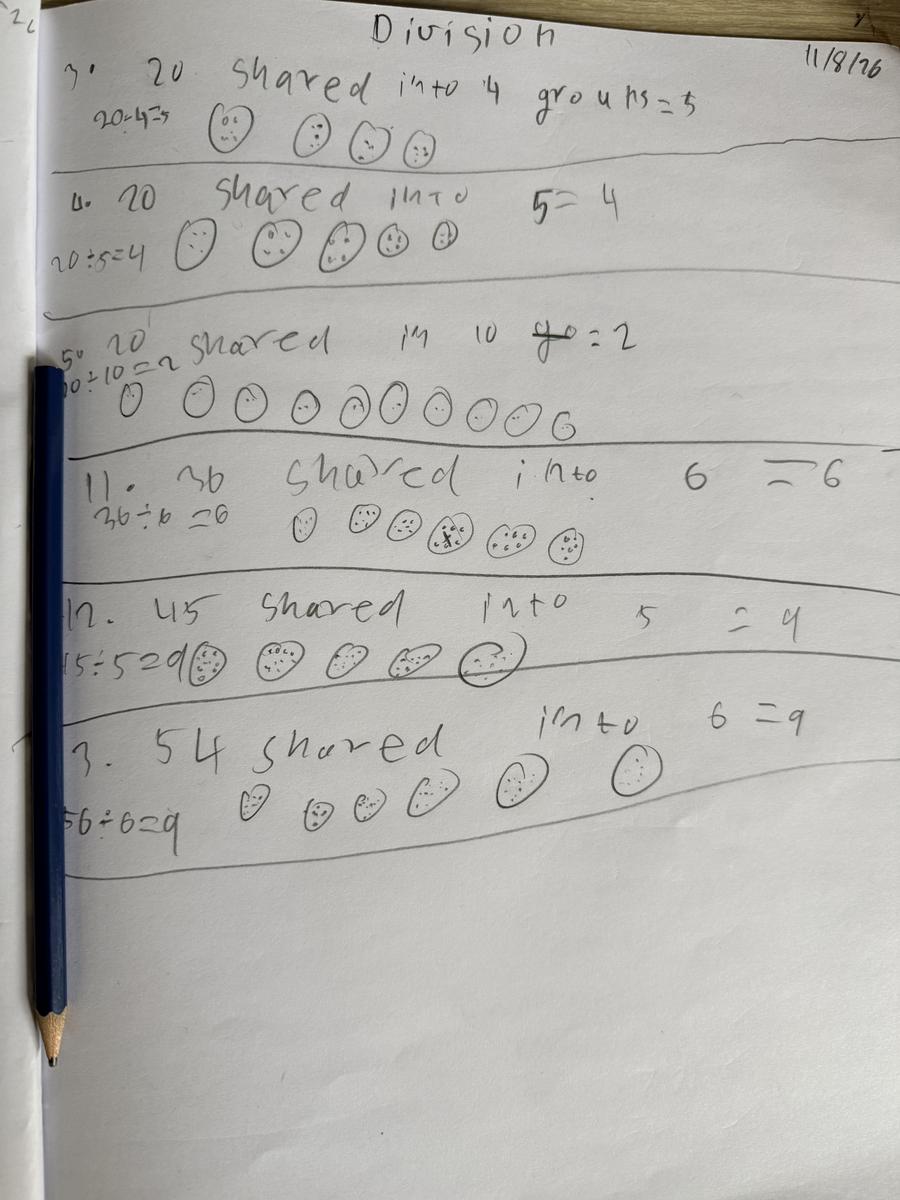 Division
11/8/26
3. 20 shared into 4 groups = 5
20÷4=5
4. 20 shared into 5 = 4
20÷5=4
5. 20 shared in 10 = 2
20÷10=2
11. 36 shared into 6 = 6
36÷6=6
12. 45 shared into 5 = 9
45÷5=9
3. 54 shared into 6 = 9
56÷6=9